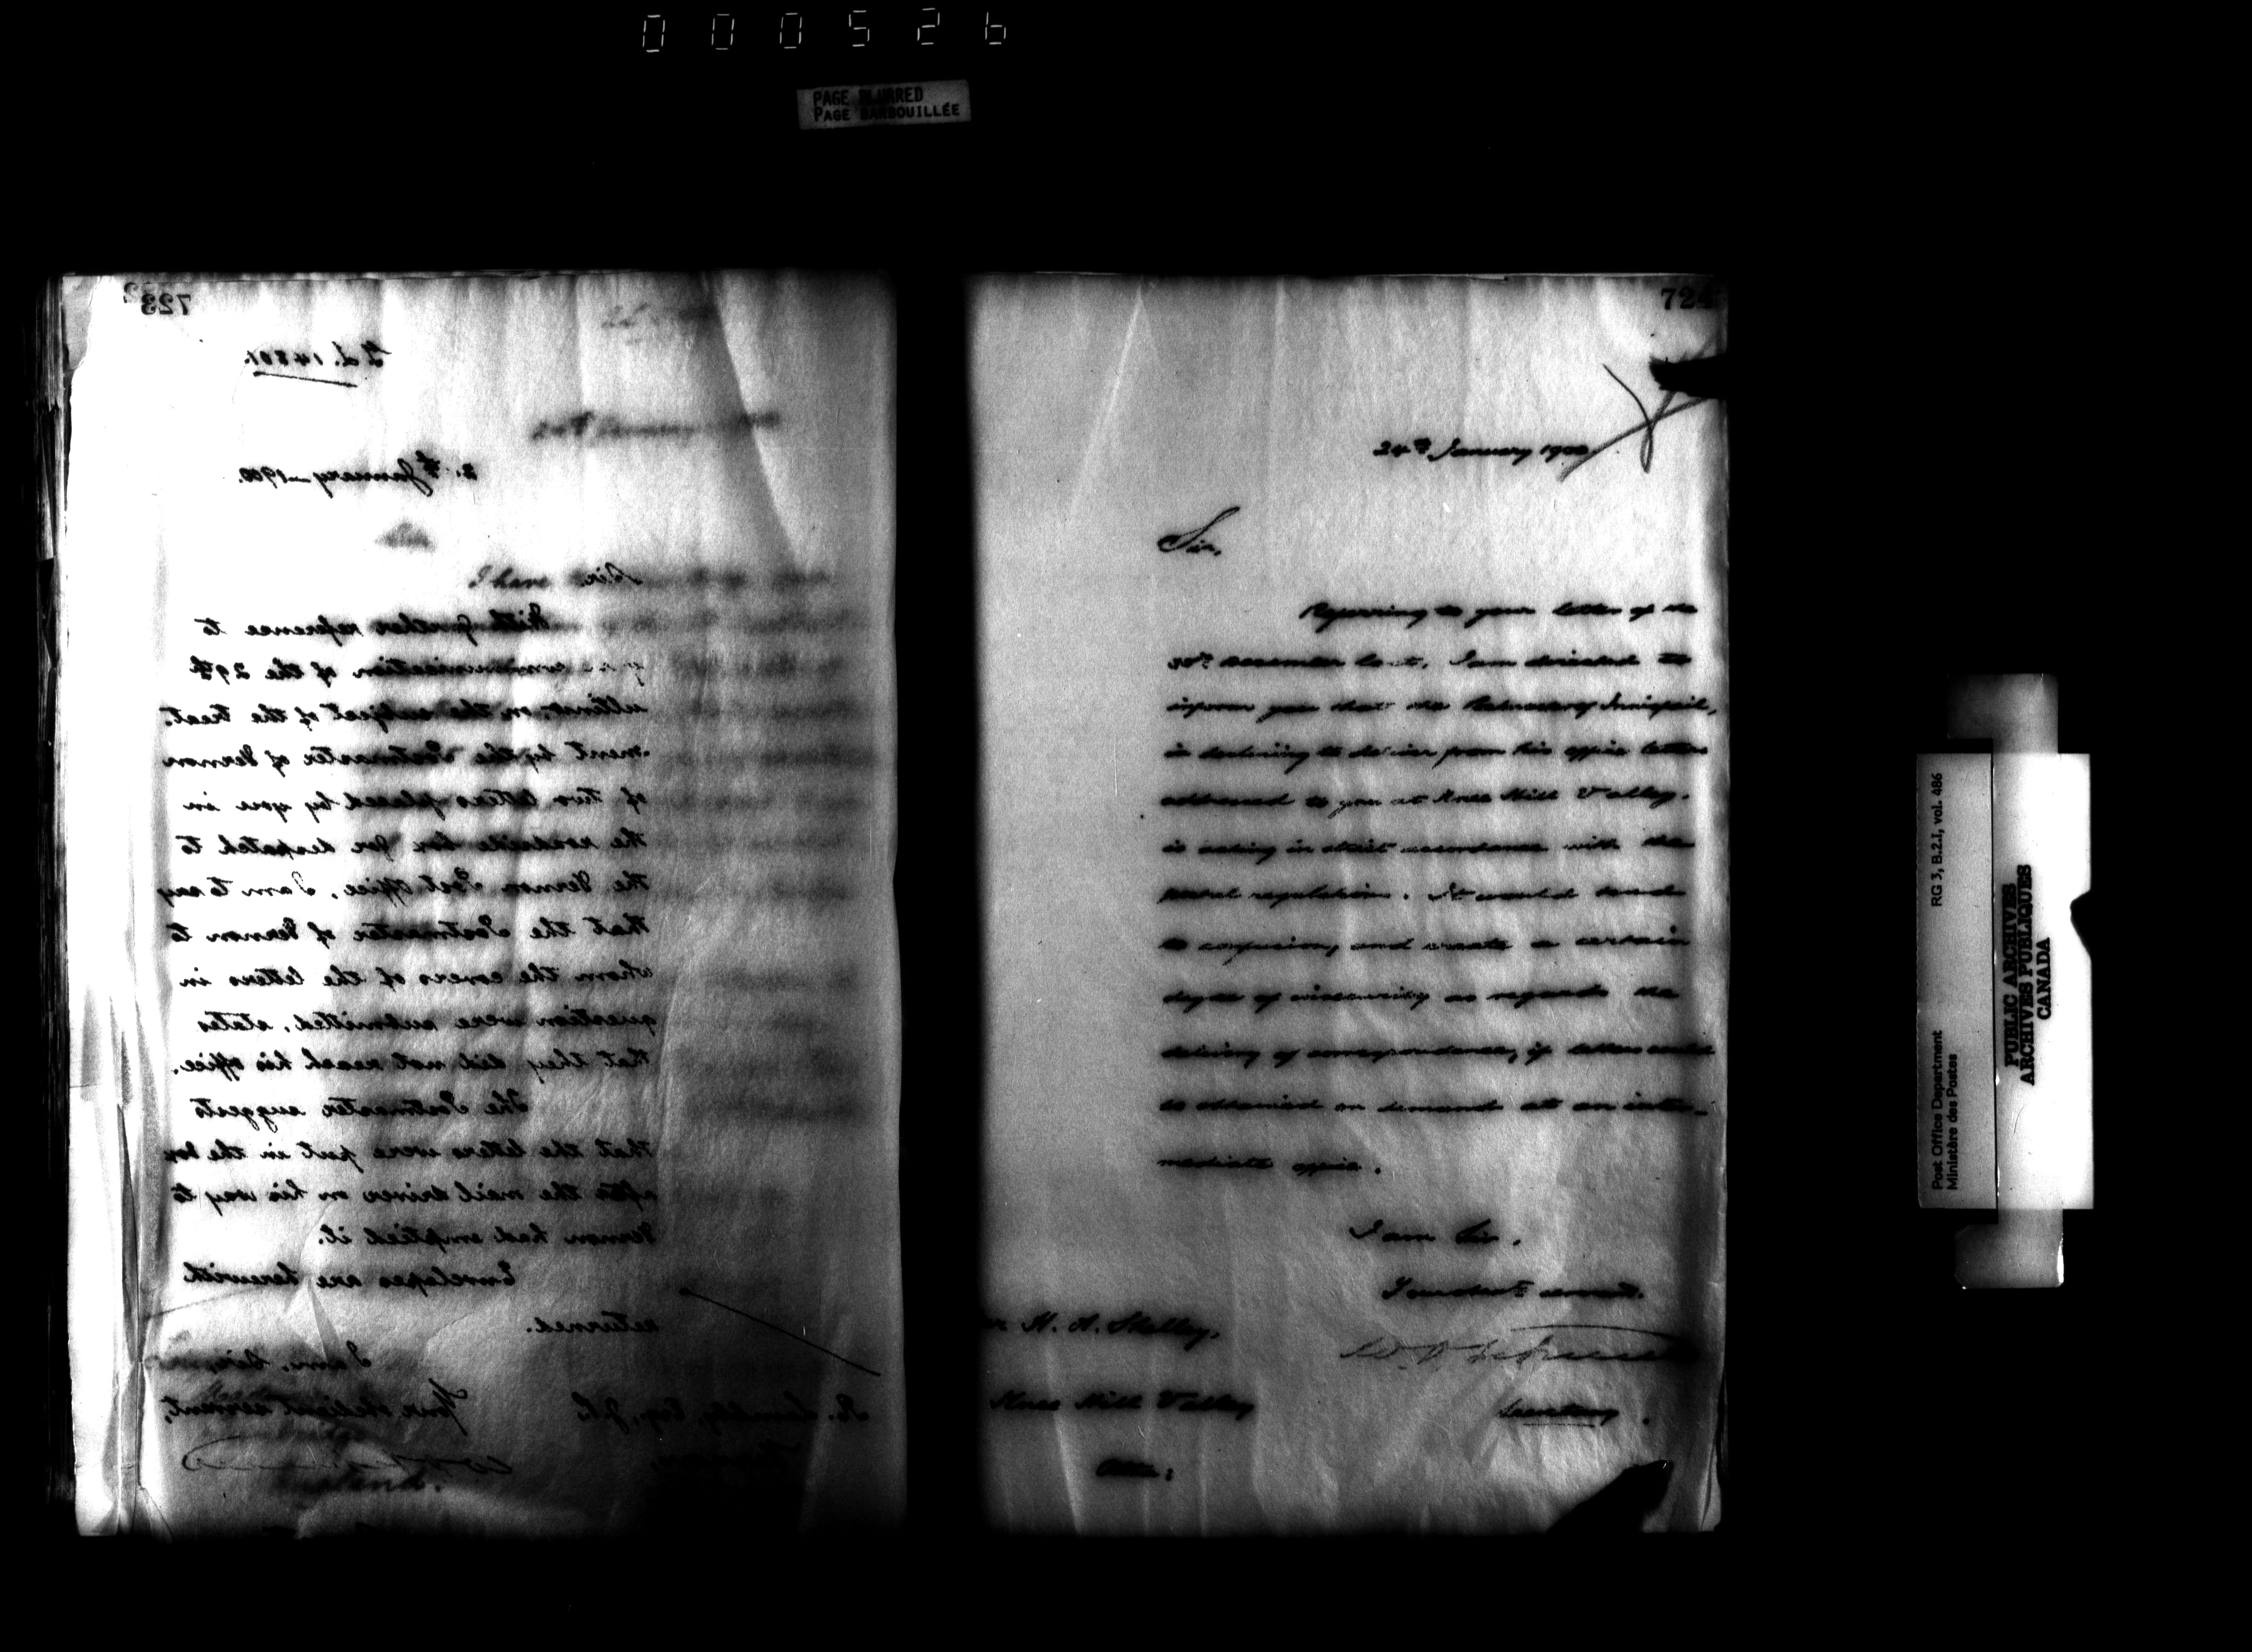 000526
PAGE BLURRED
PAGE BARBOUILLÉE
723
L.d. 14801.
January 1900.
Sir,
With further reference to
communication of the 29th
ultimo, on the subject of the treat-
ment by the Postmaster of Vernon
of two letters placed by you in
the roadside box for despatch to
the Vernon Post Office, I am to say
that the Postmaster of Vernon to
whom the covers of the letters in
question were submitted, states
that they did not reach his office.
The Postmaster suggests
that the letters were put in the box
after the mail driver on his way to
Vernon had emptied it.
Envelopes are herewith
returned.
I am, Sir,
Your obedient servant,
724
24th January 1900.
Sir,
Referring to your letter of the
December last, I am directed to
inform you that the Postmaster of Innisfail,
in declining to deliver from his office letters
addressed to you at Knee Hill Valley,
is acting in strict accordance with the
postal regulations. It would tend
to confusion, and create a certain
degree of insecurity as regards the
delivery of correspondence, if letters could
be obtained on demand at an inter-
mediate office.
I am Sir,
Your obedt servant,
H. A. Shelley,
Knee Hill Valley
Alta:
Secretary.
Post Office Department
Ministère des Postes
RG 3, B.2.I, vol. 486
PUBLIC ARCHIVES
ARCHIVES PUBLIQUES
CANADA